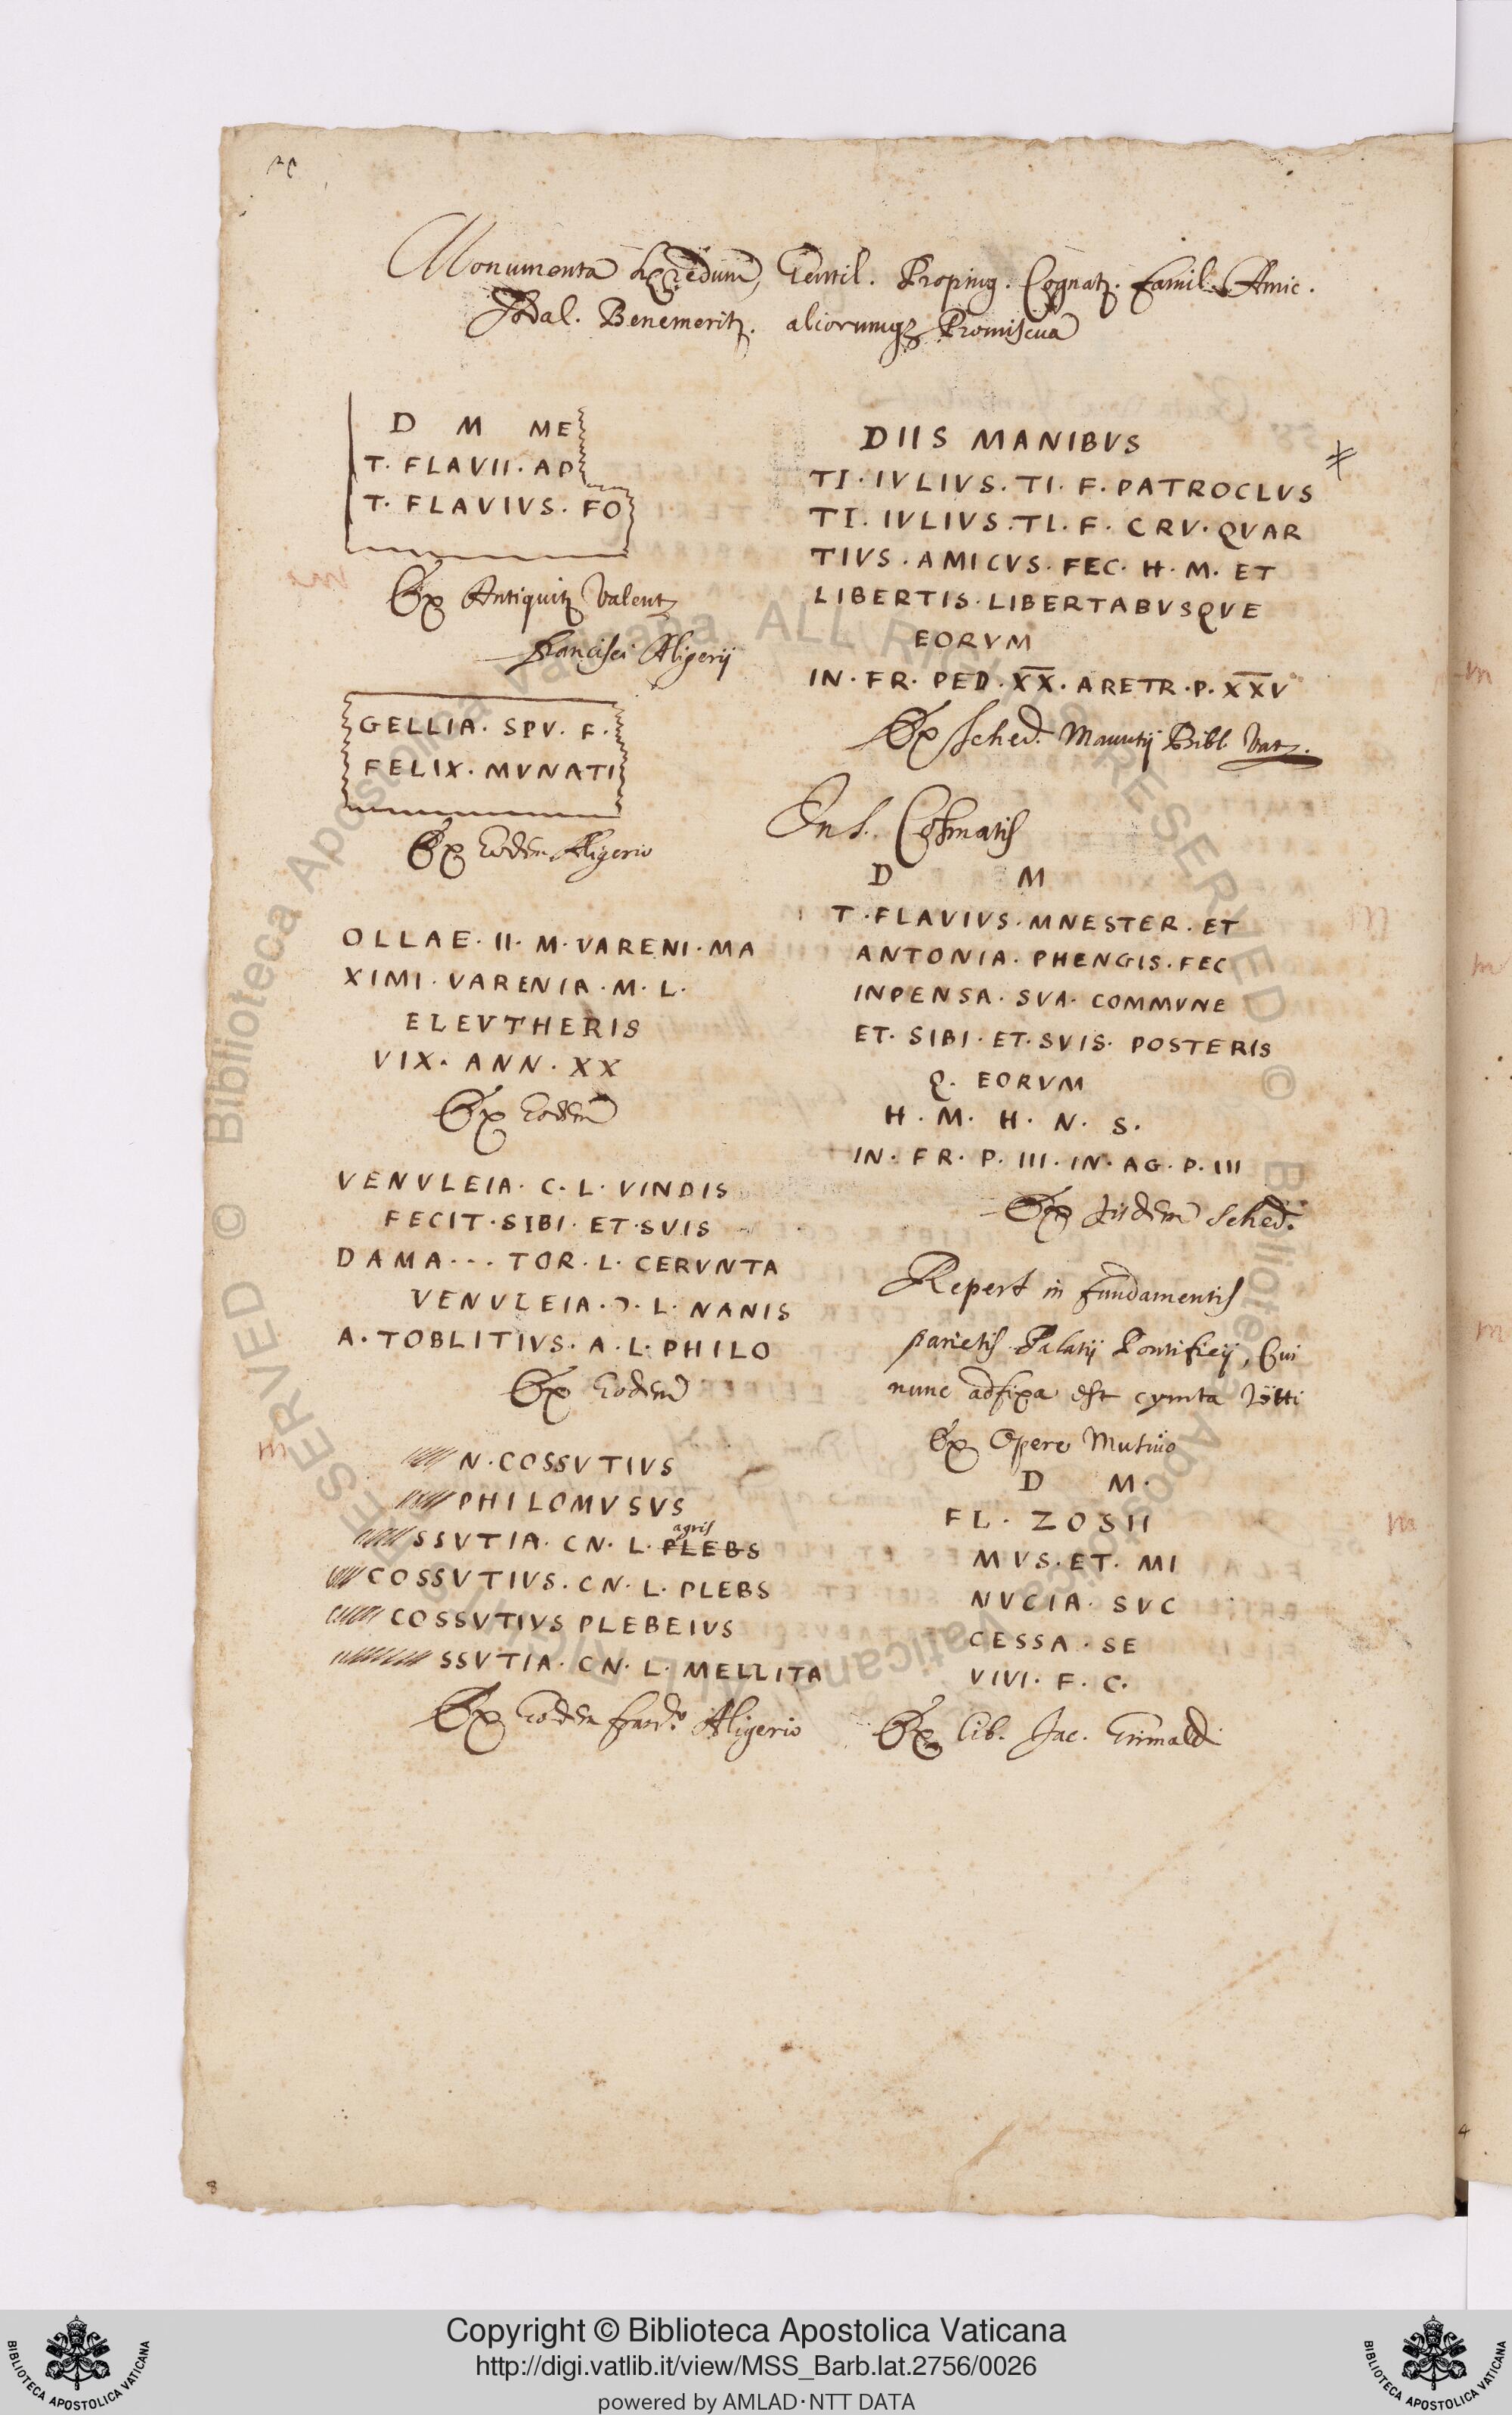 Monumenta Hæredum, Gentil. Propinq. Cognat. Famil. Amic.
Sodal. Benemerit. aliorumq; Promiscua
D M ME
T. FLAVII. AD
T. FLAVIVS. FO
Ex Antiquit Valent
Francisci Aligerij
GELLIA. SPV. F.
FELIX. MVNATI
Ex Eodem Aligerio
OLLAE. II. M. VARENI. MA
XIMI. VARENIA. M. L.
ELEVTHERIS
VIX. ANN. XX
Ex Eodem
VENVLEIA. C. L. VINDIS
FECIT. SIBI. ET. SVIS
DAMA... TOR. L. CERVNTA
VENVLEIA. Ɔ. L. NANIS
A. TOBLITIVS. A. L. PHILO
Ex Eodem
N. COSSVTIVS
PHILOMVSVS
agris
SSVTIA. CN. L. PLEBS
COSSVTIVS. CN. L. PLEBS
COSSVTIVS PLEBEIVS
SSVTIA. CN. L. MELLITA
Ex Eodem Aligerio
DIIS MANIBVS
TI. IVLIVS. TI. F. PATROCLVS
TI. IVLIVS. TI. F. CRV. QVAR
TIVS. AMICVS. FEC. H. M. ET
LIBERTIS. LIBERTABVSQVE
EORVM
IN. FR. PED. XX. ARETR. P. XXV
Ex sched. Manutij Bibl. Vat.
D M
T. FLAVIVS. MNESTER. ET
ANTONIA. PHENGIS. FEC
INPENSA. SVA. COMMVNE
ET. SIBI. ET. SVIS. POSTERIS
Q. EORVM
H. M. H. N. S.
IN. FR. P. III. IN. AG. P. III
Ex iisdem sched.
Repert in fundamentis
parietis Palatij Pontificij, Cui
nunc adfixa est
Ex Opere
D M.
FL. ZOSII
MVS. ET. MI
NVCIA. SVC
CESSA. SE
VIVI. F. C.
Ex lib. Jac. Grimaldi
8
4
Biblioteca Apostolica Vaticana ALL RIGHTS RESERVED © Biblioteca Apostolica Vaticana ALL RIGHTS RESERVED ©
Copyright © Biblioteca Apostolica Vaticana
http://digi.vatlib.it/view/MSS_Barb.lat.2756/0026
powered by AMLAD·NTT DATA
BIBLIOTECA APOSTOLICA VATICANA
BIBLIOTECA APOSTOLICA VATICANA